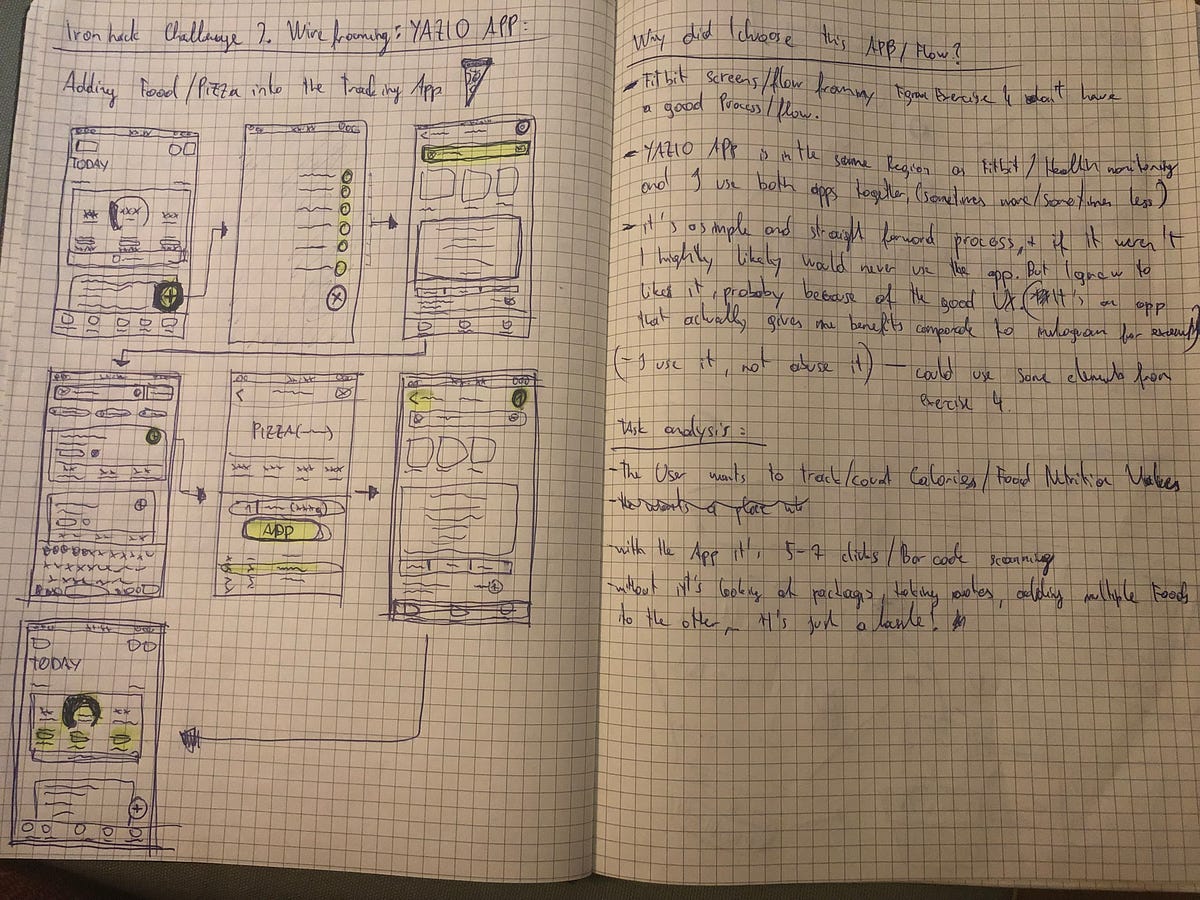 Ironhack Challenge 2. Wireframing: YAZIO APP:
Adding Food/Pizza into the Tracking App
TODAY
PIZZA(~~)
ADD
TODAY
Why did I choose this APP/Flow?
- Fitbit Screens/flow from my Figma Exercise 4 don't have
a good Process/flow.
- YAZIO APP is in the same Region as Fitbit / Health monitoring
and I use both apps together, (sometimes more/sometimes less)
- it's a simple and straight forward process, + if it weren't
I highly likely would never use the app. But I grew to
like it, probably because of the good UX. (It's an app
that actually gives me benefits compared to instagram for example)
(- I use it, not abuse it) — could use some elements from
Exercise 4.
Task analysis:
- The User wants to track/count Calories/Food Nutrition Values
- with the App it's 5-7 clicks/Bar code scanning
- without it's looking at packages, taking notes, adding multiple Foods
to the other, it's just a hassle!